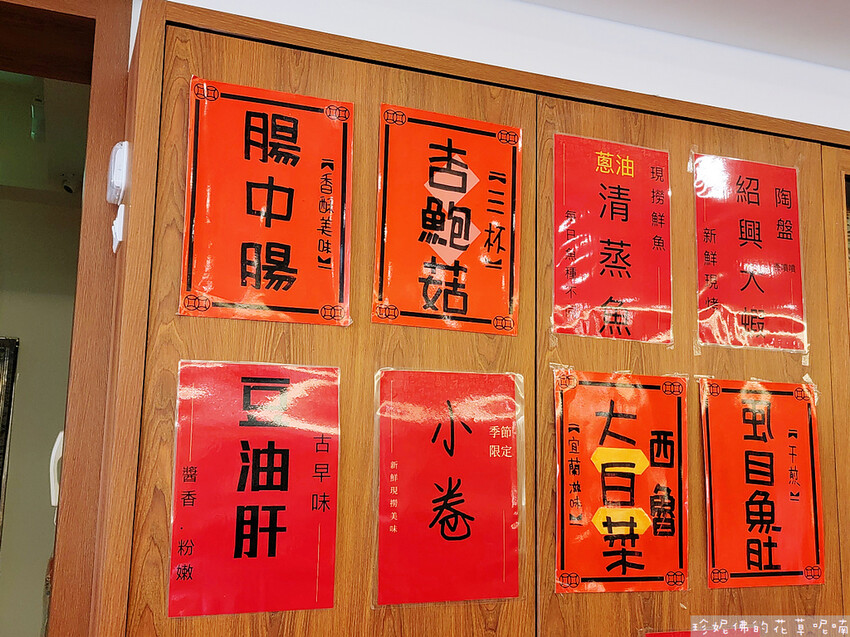 腸中腸
【香酥美味】
【三杯】
杏鮑菇
現撈鮮魚
蔥油
清蒸魚
陶盤
紹興大蝦
新鮮現烤
古早味
豆油肝
醬香．粉嫩
季節
限定
小卷
新鮮現撈美味
西魯
大白菜
【宜蘭滋味】
【干煎】
虱目魚肚
珍妮佛的花草呢喃